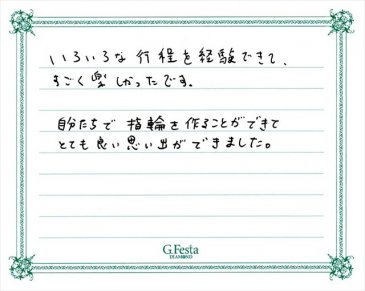 いろいろな行程を経験できて、
すごく楽しかったです。
自分たちで指輪を作ることができて
とても良い思い出ができました。
G.Festa
DIAMOND